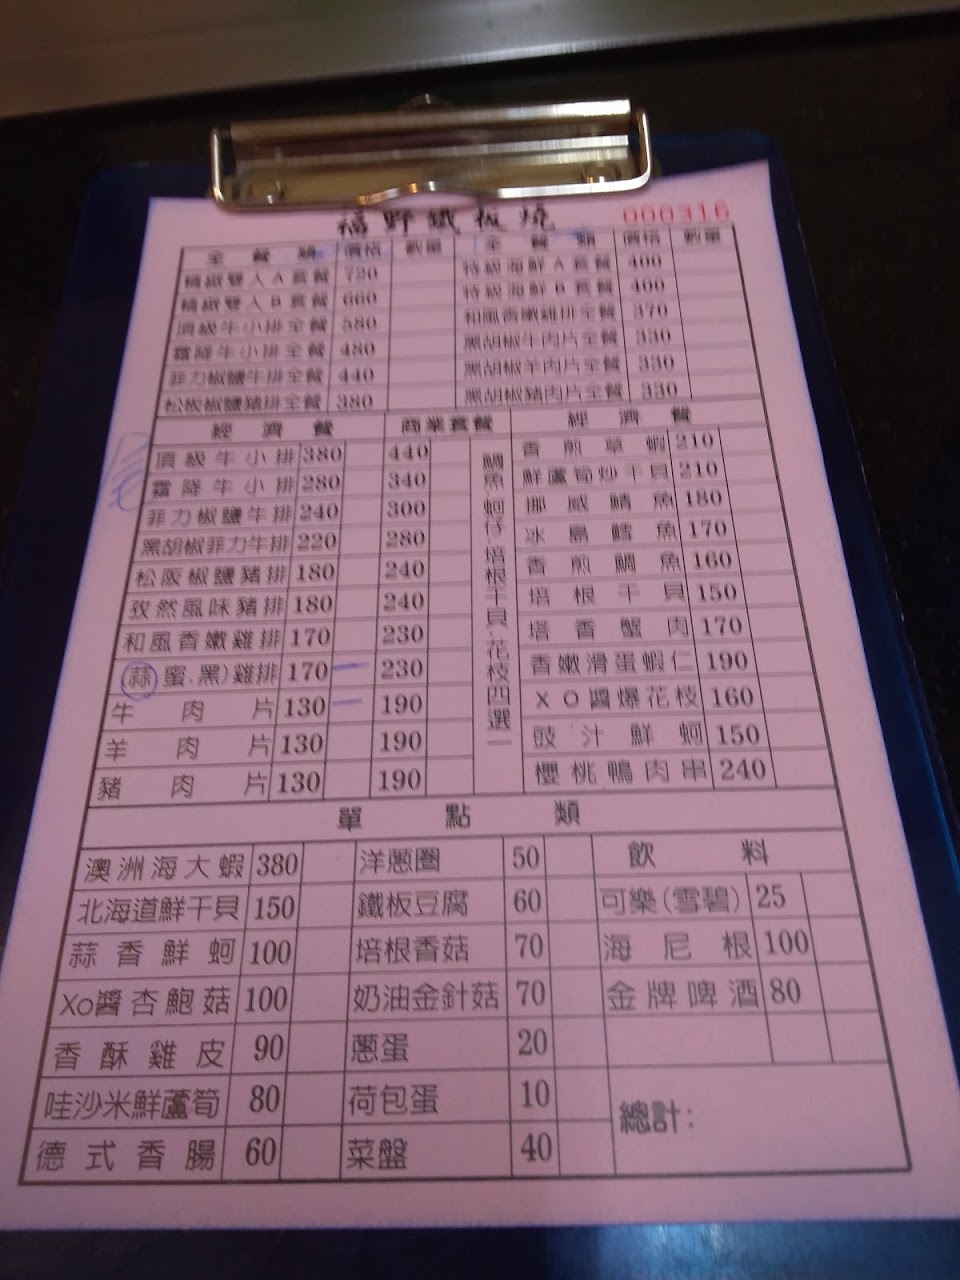 福野鐵板燒 000316
全餐類 價格 數量 全餐類 價格 數量
精緻雙人A套餐 720 特級海鮮A套餐 400
精緻雙人B套餐 660 特級海鮮B套餐 400
頂級牛小排全餐 580 和風香嫩雞排全餐 370
霜降牛小排全餐 480 黑胡椒牛肉片全餐 330
菲力椒鹽牛排全餐 440 黑胡椒羊肉片全餐 330
松板椒鹽豬排全餐 380 黑胡椒豬肉片全餐 330
經濟餐 商業套餐 經濟餐
頂級牛小排 380 440 香煎草蝦 210
霜降牛小排 280 340 鮮蘆筍炒干貝 210
菲力椒鹽牛排 240 300 挪威鯖魚 180
黑胡椒菲力牛排 220 280 冰島鱈魚 170
松阪椒鹽豬排 180 240 香煎鯛魚 160
孜然風味豬排 180 240 培根干貝 150
和風香嫩雞排 170 230 塔香蟹肉 170
(蒜、蜜、黑)雞排 170 一 230 香嫩滑蛋蝦仁 190
牛肉片 130 一 190 XO醬爆花枝 160
羊肉片 130 190 豉汁鮮蚵 150
豬肉片 130 190 櫻桃鴨肉串 240
鯛魚、蚵仔、培根干貝、花枝四選一
單點類
澳洲海大蝦 380 洋蔥圈 50 飲料
北海道鮮干貝 150 鐵板豆腐 60 可樂(雪碧) 25
蒜香鮮蚵 100 培根香菇 70 海尼根 100
Xo醬杏鮑菇 100 奶油金針菇 70 金牌啤酒 80
香酥雞皮 90 蔥蛋 20
哇沙米鮮蘆筍 80 荷包蛋 10 總計:
德式香腸 60 菜盤 40